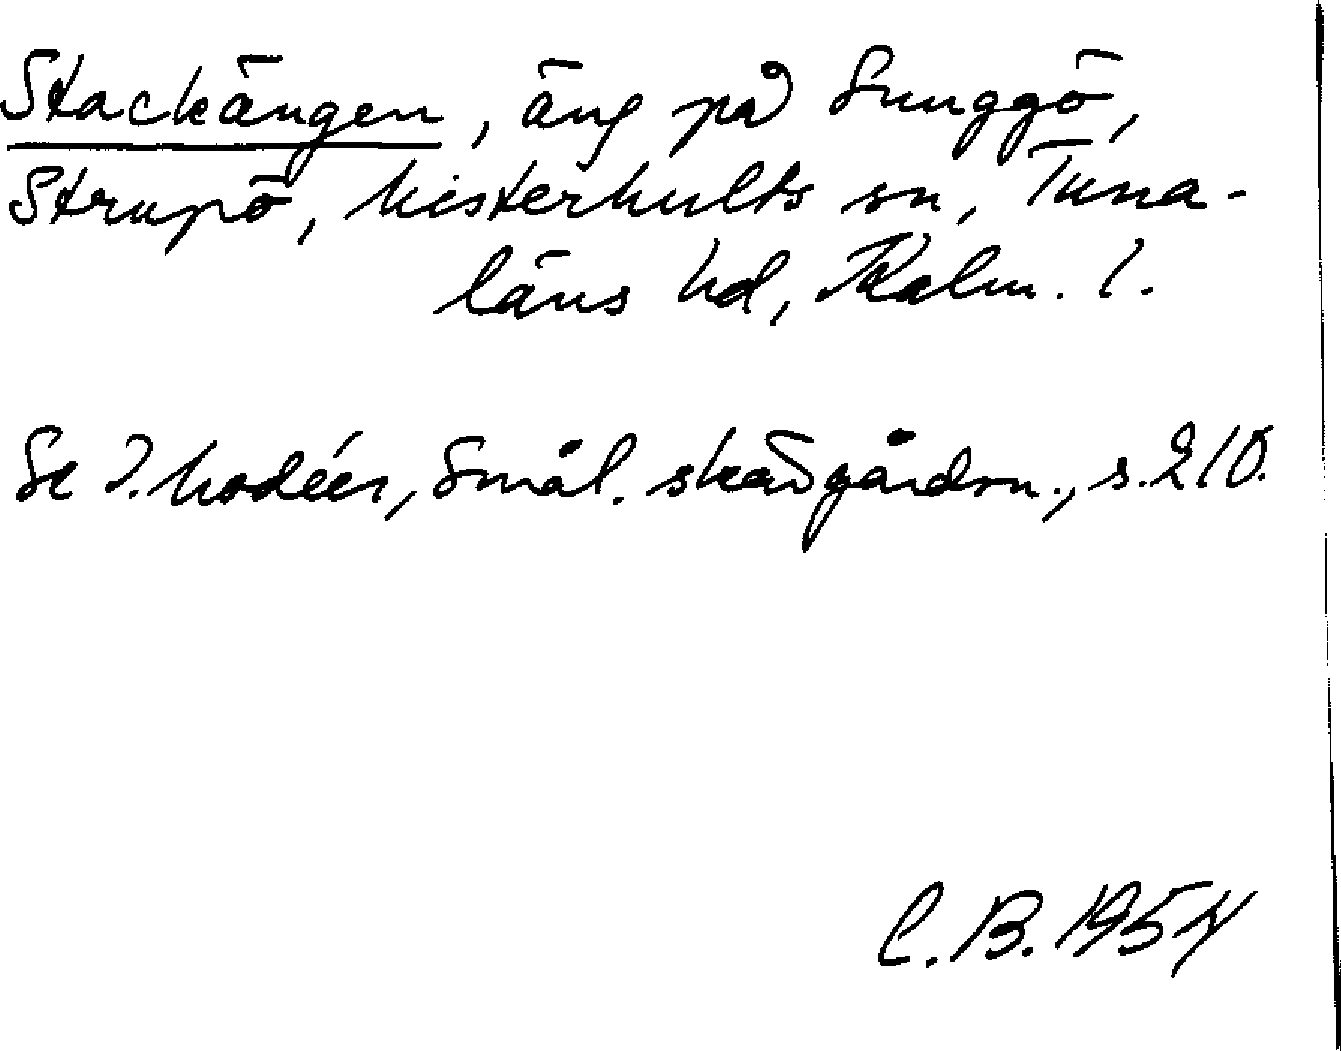 Stackängen, äng på Sunggö,
Strupö, Misterhults sn, Tuna-
läns hd, Kalm. l.
Se I. Modéer, Smål. skärgårdsn., s. 210.
C. B. 1954